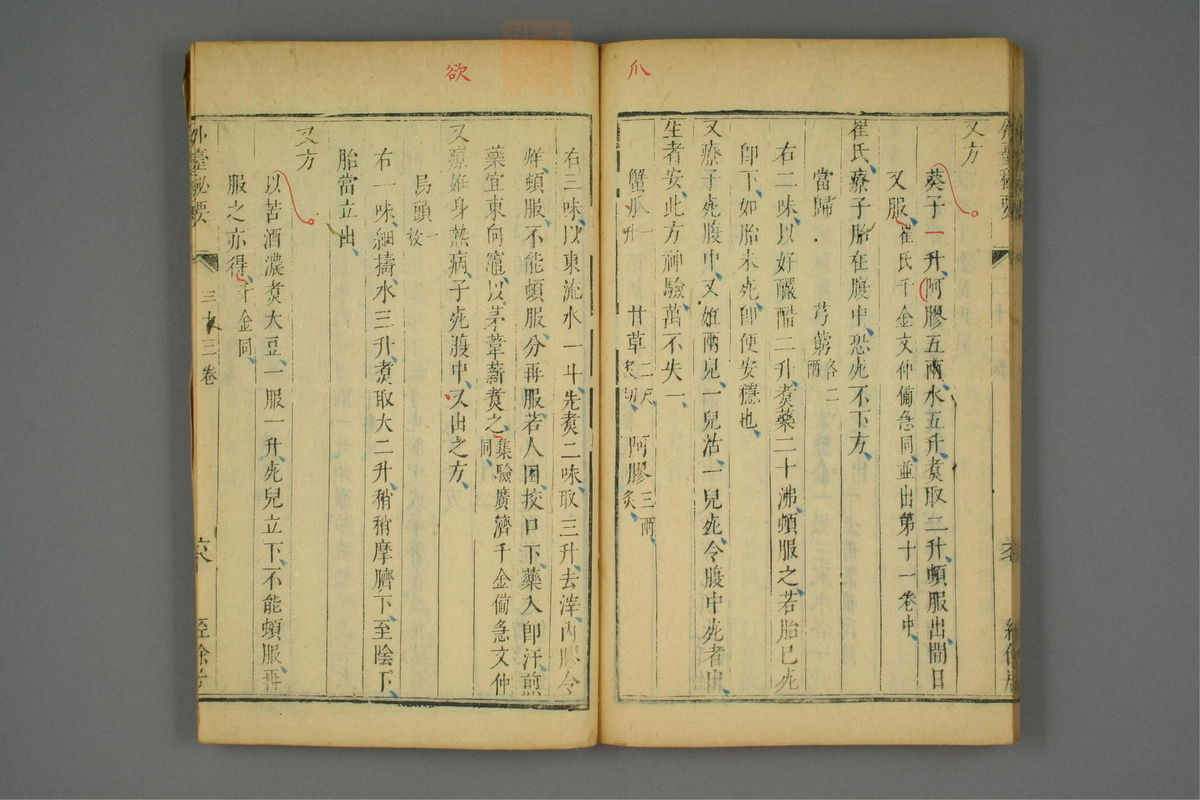 爪
又方
葵子一升阿膠五兩水五升煑取二升頓服出間日
又服崔氏千金文仲備急同並出第十一卷中
崔氏療子胎在腹中恐死不下方
當歸 芎藭各二兩
右二味以好釅醋二升煑藥二十沸頓服之若胎已死
即下如胎未死即便安穩也
又療子死腹中又妊兩兒一兒活一兒死令腹中死者出
生者安此方神驗萬不失一
蟹爪一升 甘草二尺炙切 阿膠三兩炙
欲
右三味以東流水一斗先煑二味取三升去滓內膠令
烊頓服不能頓服分再服若人困挍口下藥入即汗煎
藥宜東向竈以茅葦薪煑之集驗廣濟千金備急文仲同
又療妊身熱病子死腹中又出之方
烏頭一枚
右一味細擣水三升煑取大二升稍稍摩臍下至陰下
胎當立出
又方
以苦酒濃煑大豆一服一升死兒立下不能頓服再
服之亦得千金同
外臺秘要
三十三卷
六八
經餘居